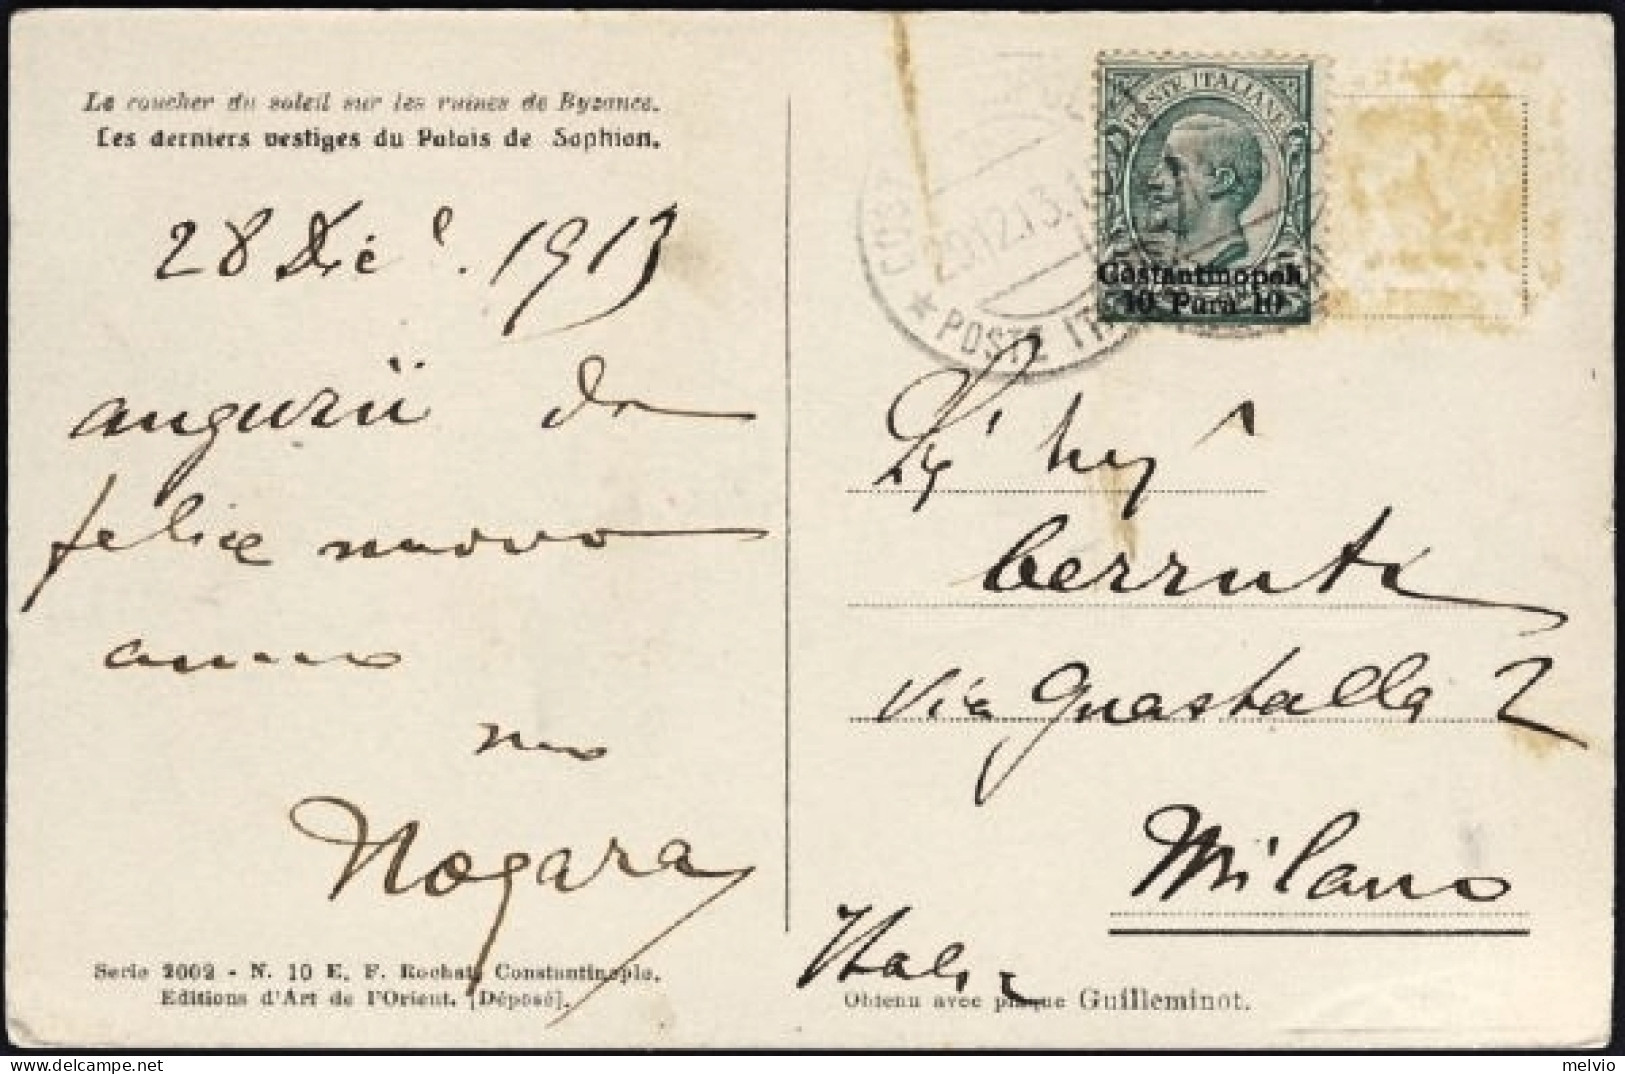 Le coucher du soleil sur les ruines de Byzance.
Les derniers vestiges du Palais de Sophian.
28 Dice. 1913
augurii de
felice nuovo
anno
Nogara
Serie 2002 - N. 10 E. F. Rochat, Constantinople.
Editions d'Art de l'Orient. [Déposé].
POSTE ITALIANE
Costantinopoli
10 Para 10
29.12.13.15
★ POSTE ITA
Berruti
Via Guastalla 2
Milano
Italia
Obtenu avec plaque Guilleminot.
melvio